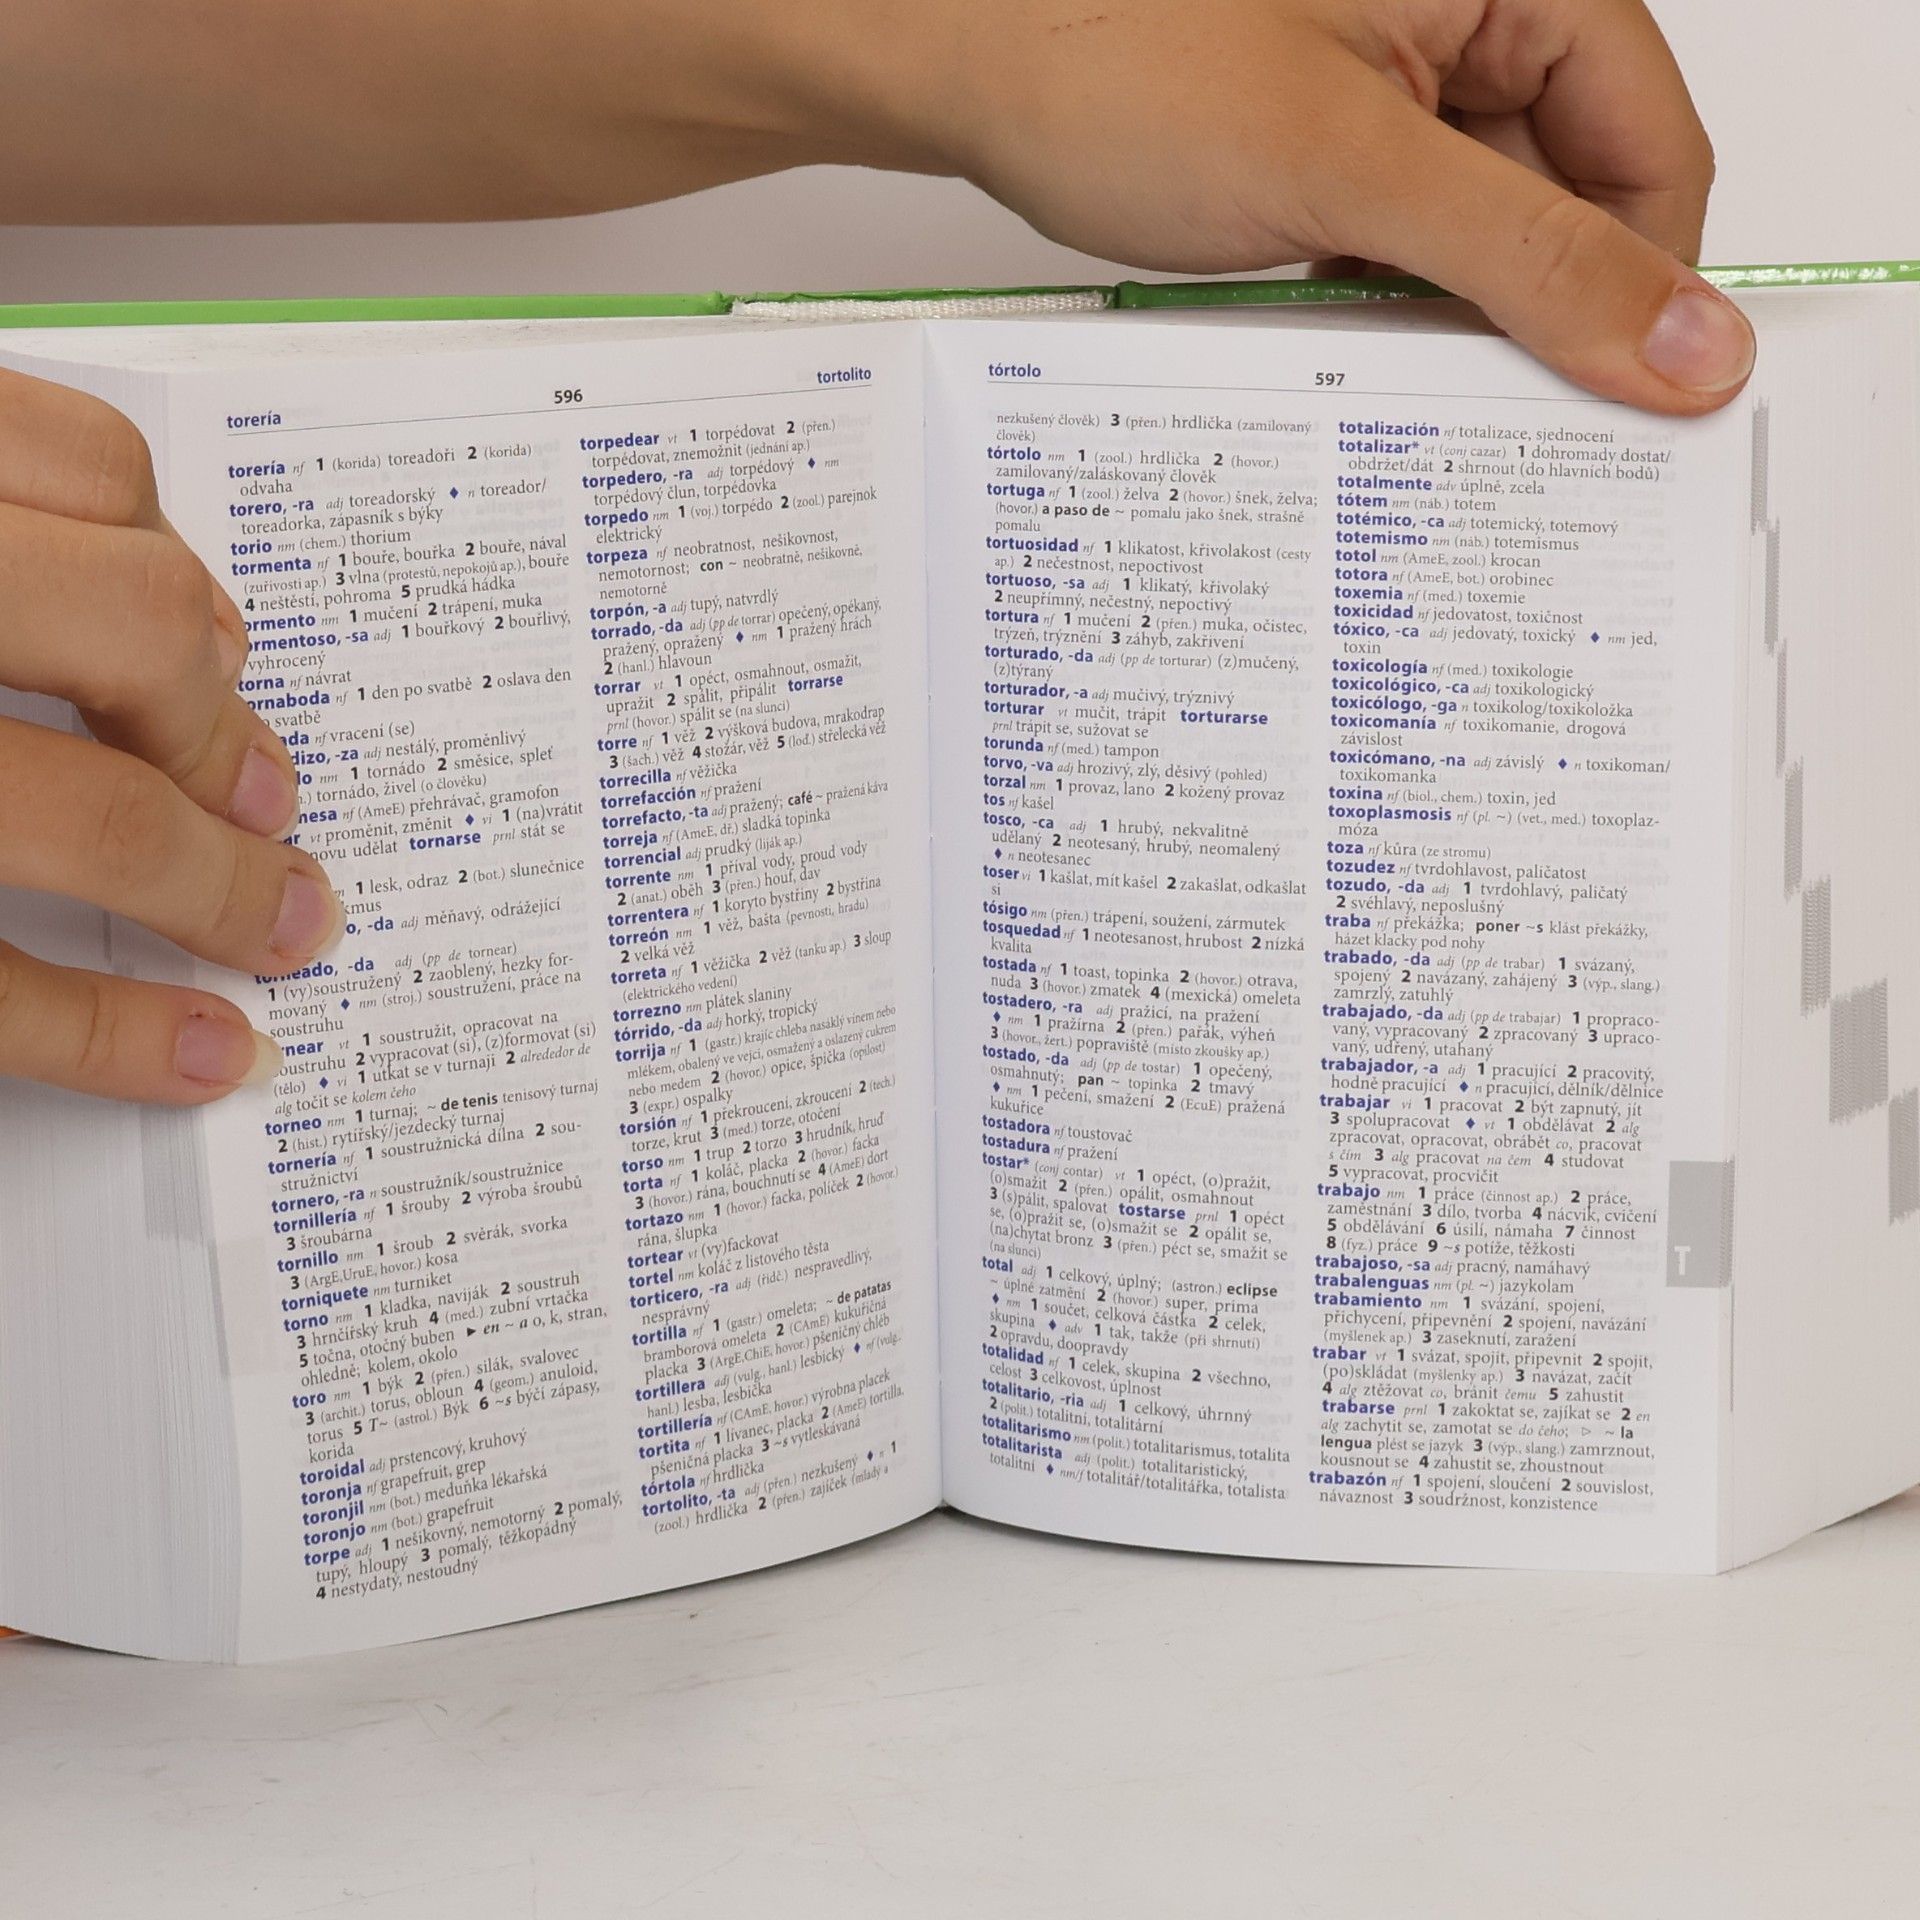 torería
596
tortolito
torería nf 1 (korida) toreadoři 2 (korida)
odvaha
torero, -ra adj toreadorský ♦ n toreador/
toreadorka, zápasník s býky
torio nm (chem.) thorium
tormenta nf 1 bouře, bouřka 2 bouře, nával
(zuřivosti ap.) 3 vlna (protestů, nepokojů ap.), bouře
4 neštěstí, pohroma 5 prudká hádka
ormento nm 1 mučení 2 trápení, muka
ormentoso, -sa adj 1 bouřkový 2 bouřlivý,
vyhrocený
torna nf návrat
ornaboda nf 1 den po svatbě 2 oslava den
svatbě
ada nf vracení (se)
dizo, -za adj nestálý, proměnlivý
lo nm 1 tornádo 2 směsice, spleť
tornádo, živel (o člověku)
nesa nf (AmeE) přehrávač, gramofon
ar vt proměnit, změnit ♦ vi 1 (na)vrátit
novu udělat tornarse prnl stát se
1 lesk, odraz 2 (bot.) slunečnice
kmus
o, -da adj měňavý, odrážející
torneado, -da adj (pp de tornear)
1 (vy)soustružený 2 zaoblený, hezky for-
movaný ♦ nm (stroj.) soustružení, práce na
soustruhu
rnear vt 1 soustružit, opracovat na
oustruhu 2 vypracovat (si), (z)formovat (si)
(tělo) ♦ vi 1 utkat se v turnaji 2 alrededor de
alg točit se kolem čeho
torneo nm 1 turnaj; ~ de tenis tenisový turnaj
2 (hist.) rytířský/jezdecký turnaj
tornería nf 1 soustružnická dílna 2 sou-
stružnictví
tornero, -ra n soustružník/soustružnice
tornillería nf 1 šrouby 2 výroba šroubů
3 šroubárna
tornillo nm 1 šroub 2 svěrák, svorka
3 (ArgE,UruE, hovor.) kosa
torniquete nm turniket
torno nm 1 kladka, naviják 2 soustruh
3 hrnčířský kruh 4 (med.) zubní vrtačka
5 točna, otočný buben ► en ~ a o, k, stran,
ohledně; kolem, okolo
toro nm 1 býk 2 (přen.) silák, svalovec
3 (archit.) torus, obloun 4 (geom.) anuloid,
torus 5 T~ (astrol.) Býk 6 ~s býčí zápasy,
korida
toroidal adj prstencový, kruhový
toronja nf grapefruit, grep
toronjil nm (bot.) meduňka lékařská
toronjo nm (bot.) grapefruit
torpe adj 1 nešikovný, nemotorný 2 pomalý,
tupý, hloupý 3 pomalý, těžkopádný
4 nestydatý, nestoudný
torpedear vt 1 torpédovat 2 (přen.)
torpédovat, znemožnit (jednání ap.)
torpedero, -ra adj torpédový ♦ nm
torpédový člun, torpédovka
torpedo nm 1 (voj.) torpédo 2 (zool.) parejnok
elektrický
torpeza nf neobratnost, nešikovnost,
nemotornost; con ~ neobratně, nešikovně,
nemotorně
torpón, -a adj tupý, natvrdlý
torrado, -da adj (pp de torrar) opečený, opékaný,
pražený, opražený ♦ nm 1 pražený hrách
2 (hanl.) hlavoun
torrar vt 1 opéct, osmahnout, osmažit,
upražit 2 spálit, připálit torrarse
prnl (hovor.) spálit se (na slunci)
torre nf 1 věž 2 výšková budova, mrakodrap
3 (šach.) věž 4 stožár, věž 5 (loď.) střelecká věž
torrecilla nf věžička
torrefacción nf pražení
torrefacto, -ta adj pražený; café ~ pražená káva
torreja nf (AmeE, dř.) sladká topinka
torrencial adj prudký (liják ap.)
torrente nm 1 příval vody, proud vody
2 (anat.) oběh 3 (přen.) houf, dav
torrentera nf 1 koryto bystřiny 2 bystřina
torreón nm 1 věž, bašta (pevnosti, hradu)
2 velká věž
torreta nf 1 věžička 2 věž (tanku ap.) 3 sloup
(elektrického vedení)
torrezno nm plátek slaniny
tórrido, -da adj horký, tropický
torrija nf 1 (gastr.) krajíc chleba nasáklý vínem nebo
mlékem, obalený ve vejci, osmažený a oslazený cukrem
nebo medem 2 (hovor.) opice, špička (opilost)
3 (expr.) ospalky
torsión nf 1 překroucení, zkroucení 2 (tech.)
torze, krut 3 (med.) torze, otočení
torso nm 1 trup 2 torzo 3 hrudník, hruď
torta nf 1 koláč, placka 2 (hovor.) facka
3 (hovor.) rána, bouchnutí se 4 (AmeE) dort
tortazo nm 1 (hovor.) facka, políček 2 (hovor.)
rána, šlupka
tortear vt (vy)fackovat
tortel nm koláč z listového těsta
torticero, -ra adj (řidč.) nespravedlivý,
nesprávný
tortilla nf 1 (gastr.) omeleta; ~ de patatas
bramborová omeleta 2 (CAmE) kukuřičná
placka 3 (ArgE,ChiE, hovor.) pšeničný chléb
tortillera adj (vulg., hanl.) lesbický ♦ nf (vulg.,
hanl.) lesba, lesbička
tortillería nf (CAmE, hovor.) výrobna placek
tortita nf 1 lívanec, placka 2 (AmeE) tortilla,
pšeničná placka 3 ~s vytleskávaná
tórtola nf hrdlička
tortolito, -ta adj (přen.) nezkušený ♦ n 1
(zool.) hrdlička 2 (přen.) zajíček (mladý a
tórtolo
597
nezkušený člověk) 3 (přen.) hrdlička (zamilovaný
člověk)
tórtolo nm 1 (zool.) hrdlička 2 (hovor.)
zamilovaný/zaláskovaný člověk
tortuga nf 1 (zool.) želva 2 (hovor.) šnek, želva;
(hovor.) a paso de ~ pomalu jako šnek, strašně
pomalu
tortuosidad nf 1 klikatost, křivolakost (cesty
ap.) 2 nečestnost, nepoctivost
tortuoso, -sa adj 1 klikatý, křivolaký
2 neupřímný, nečestný, nepoctivý
tortura nf 1 mučení 2 (přen.) muka, očistec,
trýzeň, trýznění 3 záhyb, zakřivení
torturado, -da adj (pp de torturar) (z)mučený,
(z)týraný
torturador, -a adj mučivý, trýznivý
torturar vt mučit, trápit torturarse
prnl trápit se, sužovat se
torunda nf (med.) tampon
torvo, -va adj hrozivý, zlý, děsivý (pohled)
torzal nm 1 provaz, lano 2 kožený provaz
tos nf kašel
tosco, -ca adj 1 hrubý, nekvalitně
udělaný 2 neotesaný, hrubý, neomalený
♦ n neotesanec
toser vi 1 kašlat, mít kašel 2 zakašlat, odkašlat
si
tósigo nm (přen.) trápení, soužení, zármutek
tosquedad nf 1 neotesanost, hrubost 2 nízká
kvalita
tostada nf 1 toast, topinka 2 (hovor.) otrava,
nuda 3 (hovor.) zmatek 4 (mexická) omeleta
tostadero, -ra adj pražicí, na pražení
♦ nm 1 pražírna 2 (přen.) pařák, výheň
3 (hovor., žert.) popraviště (místo zkoušky ap.)
tostado, -da adj (pp de tostar) 1 opečený,
osmahnutý; pan ~ topinka 2 tmavý
♦ nm 1 pečení, smažení 2 (EcuE) pražená
kukuřice
tostadora nf toustovač
tostadura nf pražení
tostar* (conj contar) vt 1 opéct, (o)pražit,
(o)smažit 2 (přen.) opálit, osmahnout
3 (s)pálit, spalovat tostarse prnl 1 opéct
se, (o)pražit se, (o)smažit se 2 opálit se,
(na)chytat bronz 3 (přen.) péct se, smažit se
(na slunci)
total adj 1 celkový, úplný; (astron.) eclipse
~ úplné zatmění 2 (hovor.) super, prima
♦ nm 1 součet, celková částka 2 celek,
skupina ♦ adv 1 tak, takže (při shrnutí)
2 opravdu, doopravdy
totalidad nf 1 celek, skupina 2 všechno,
celost 3 celkovost, úplnost
totalitario, -ria adj 1 celkový, úhrnný
2 (polit.) totalitní, totalitární
totalitarismo nm (polit.) totalitarismus, totalita
totalitarista adj (polit.) totalitaristický,
totalitní ♦ nm/f totalitář/totalitářka, totalista
totalización nf totalizace, sjednocení
totalizar* vt (conj cazar) 1 dohromady dostat/
obdržet/dát 2 shrnout (do hlavních bodů)
totalmente adv úplně, zcela
tótem nm (náb.) totem
totémico, -ca adj totemický, totemový
totemismo nm (náb.) totemismus
totol nm (AmeE, zool.) krocan
totora nf (AmeE, bot.) orobinec
toxemia nf (med.) toxemie
toxicidad nf jedovatost, toxičnost
tóxico, -ca adj jedovatý, toxický ♦ nm jed,
toxin
toxicología nf (med.) toxikologie
toxicológico, -ca adj toxikologický
toxicólogo, -ga n toxikolog/toxikoložka
toxicomanía nf toxikomanie, drogová
závislost
toxicómano, -na adj závislý ♦ n toxikoman/
toxikomanka
toxina nf (biol., chem.) toxin, jed
toxoplasmosis nf (pl. ~) (vet., med.) toxoplaz-
móza
toza nf kůra (ze stromu)
tozudez nf tvrdohlavost, paličatost
tozudo, -da adj 1 tvrdohlavý, paličatý
2 svéhlavý, neposlušný
traba nf překážka; poner ~s klást překážky,
házet klacky pod nohy
trabado, -da adj (pp de trabar) 1 svázaný,
spojený 2 navázaný, zahájený 3 (výp., slang.)
zamrzlý, zatuhlý
trabajado, -da adj (pp de trabajar) 1 propraco-
vaný, vypracovaný 2 zpracovaný 3 upraco-
vaný, udřený, utahaný
trabajador, -a adj 1 pracující 2 pracovitý,
hodně pracující ♦ n pracující, dělník/dělnice
trabajar vi 1 pracovat 2 být zapnutý, jít
3 spolupracovat ♦ vt 1 obdělávat 2 alg
zpracovat, opracovat, obrábět co, pracovat
s čím 3 alg pracovat na čem 4 studovat
5 vypracovat, procvičit
trabajo nm 1 práce (činnost ap.) 2 práce,
zaměstnání 3 dílo, tvorba 4 nácvik, cvičení
5 obdělávání 6 úsilí, námaha 7 činnost
8 (fyz.) práce 9 ~s potíže, těžkosti
trabajoso, -sa adj pracný, namáhavý
trabalenguas nm (pl. ~) jazykolam
trabamiento nm 1 svázání, spojení,
přichycení, připevnění 2 spojení, navázání
(myšlenek ap.) 3 zaseknutí, zaražení
trabar vt 1 svázat, spojit, připevnit 2 spojit,
(po)skládat (myšlenky ap.) 3 navázat, začít
4 alg ztěžovat co, bránit čemu 5 zahustit
trabarse prnl 1 zakoktat se, zajíkat se 2 en
alg zachytit se, zamotat se do čeho; ▷ ~ la
lengua plést se jazyk 3 (výp., slang.) zamrznout,
kousnout se 4 zahustit se, zhoustnout
trabazón nf 1 spojení, sloučení 2 souvislost,
návaznost 3 soudržnost, konzistence
T